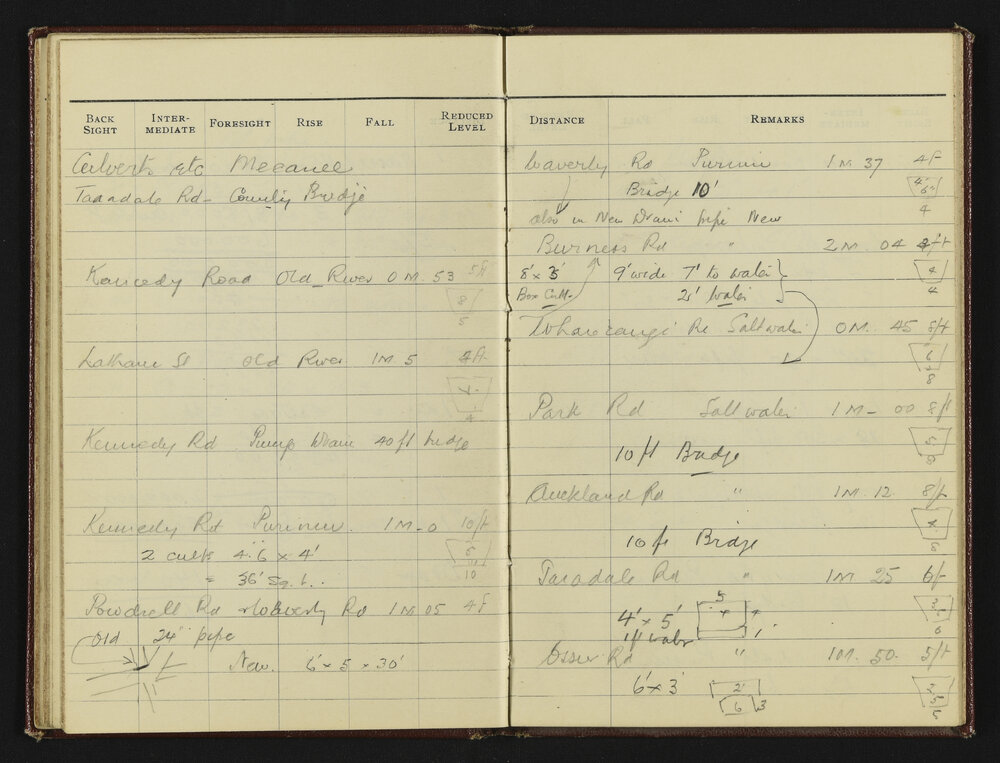 BACK SIGHT INTER-MEDIATE FORESIGHT RISE FALL REDUCED LEVEL
Culverts etc Meeanee
Taradale Rd - County Bridge
Kennedy Road Old River 0 M. 53 5ft
8
5
Latham St Old River 1 M. 5 4ft
4
Kennedy Rd Pump Drain 40 ft bridge
Kennedy Rd Purimu 1 M - 0 10ft
2 cults 4.6 x 4'
" 36' sq.
6
10
Powdrell Rd Waverly Rd 1 M 05 4F
Old 24" pipe
New. 6' x 5 x 30'
DISTANCE REMARKS
Waverly Rd Purimu 1 M 37 4F
Bridge 10'
4
6
4
also in New Drain pipe New
Burness Rd " 2 M. 04 ft
8' x 3' 9' wide 7' to water
Box Cult. 2' water
4
4
Rd Saltwater 0 M. 45 8ft
6
8
Park Rd Saltwater 1 M - 00 8ft
10 ft Bridge
5
8
Auckland Rd " 1 M. 12 8ft
10 ft Bridge
4
6
Taradale Rd " 1 M 25 6ft
4' x 5'
1ft water
5
4
1'
6
Rd " 1 M. 50. 5ft
6' x 3'
2'
6 3
6